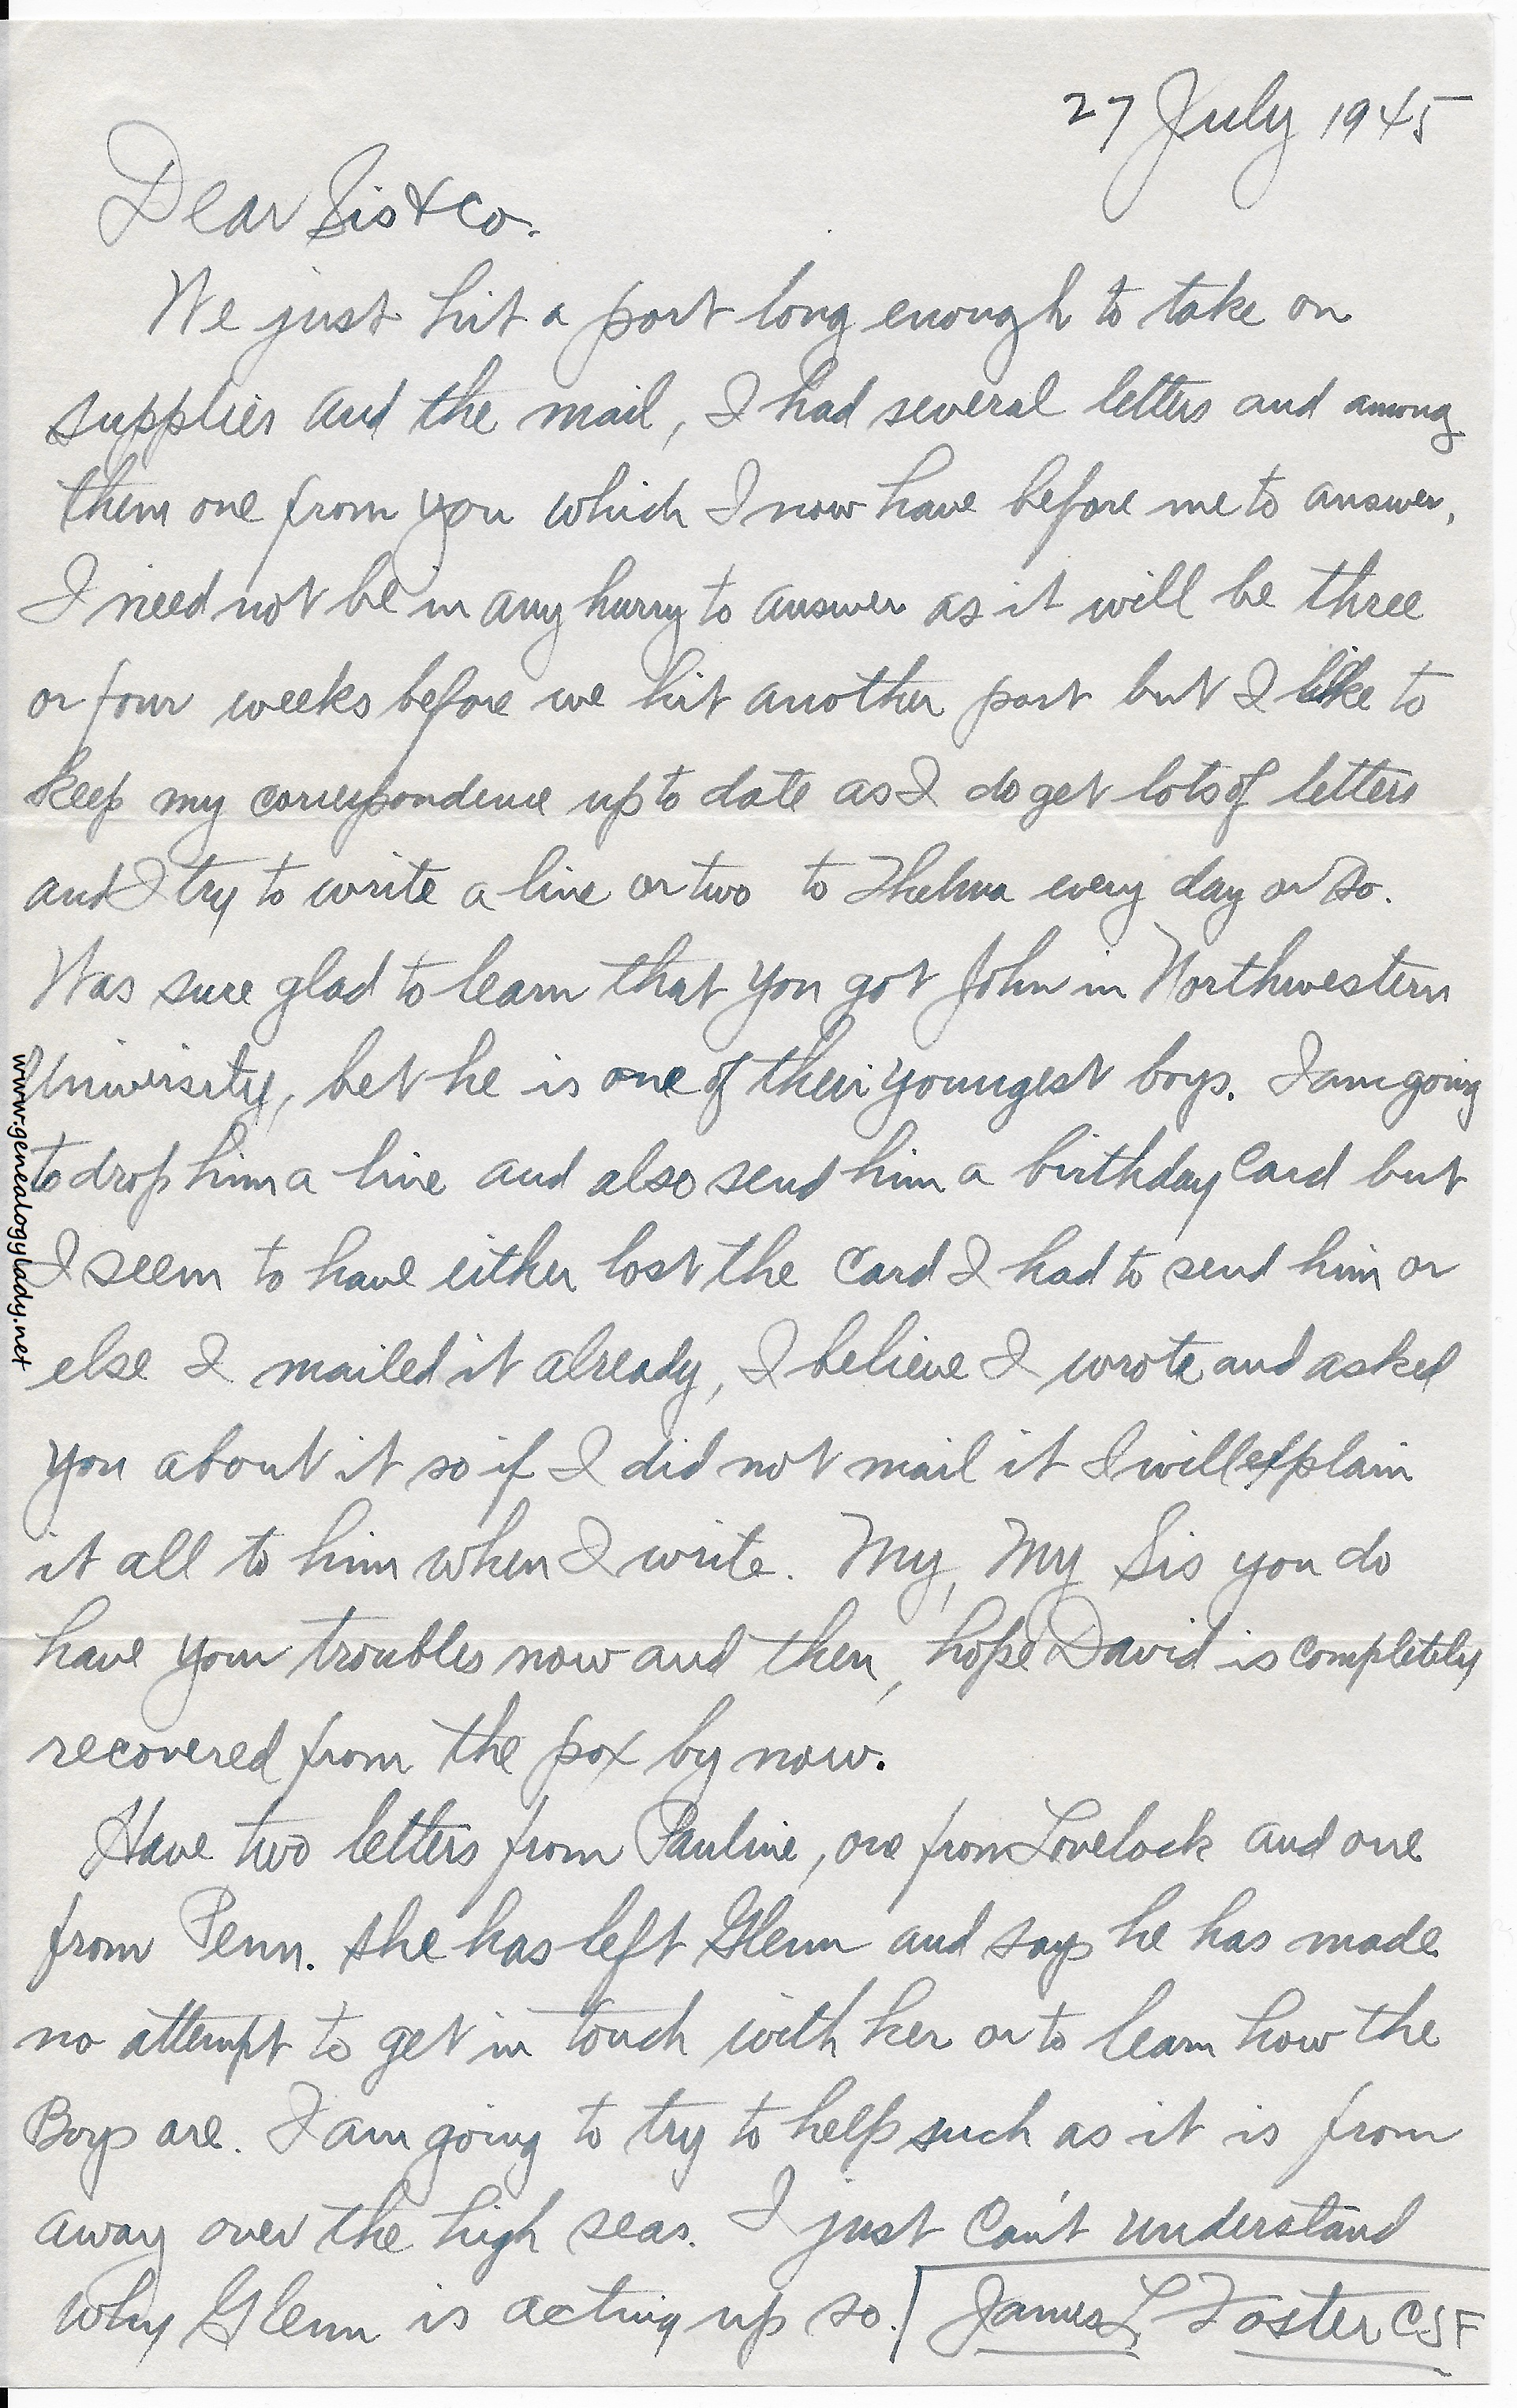 27 July 1945
Dear Sis & Co.
We just hit a port long enough to take on
supplies and the mail, I had several letters and among
them one from you which I now have before me to answer,
I need not be in any hurry to answer as it will be three
or four weeks before we hit another port but I like to
keep my correspondence up to date as I do get lots of letters
and I try to write a line or two to Thelma every day or so.
Was sure glad to learn that you got John in Northwestern
University, bet he is one of their youngest boys. I am going
to drop him a line and also send him a birthday card but
I seem to have either lost the card I had to send him or
else I mailed it already, I believe I wrote and asked
you about it so if I did not mail it I will explain
it all to him when I write. My, My Sis you do
have your troubles now and then, hope David is completely
recovered from the pox by now.
Have two letters from Pauline, one from Lovelock and one
from Penn. she has left Glenn and says he has made
no attempt to get in touch with her or to learn how the
Boys are. I am going to try to help such as it is from
away over the high seas. I just can't understand
why Glenn is acting up so.
James L Foster CSF
www.genealogylady.net